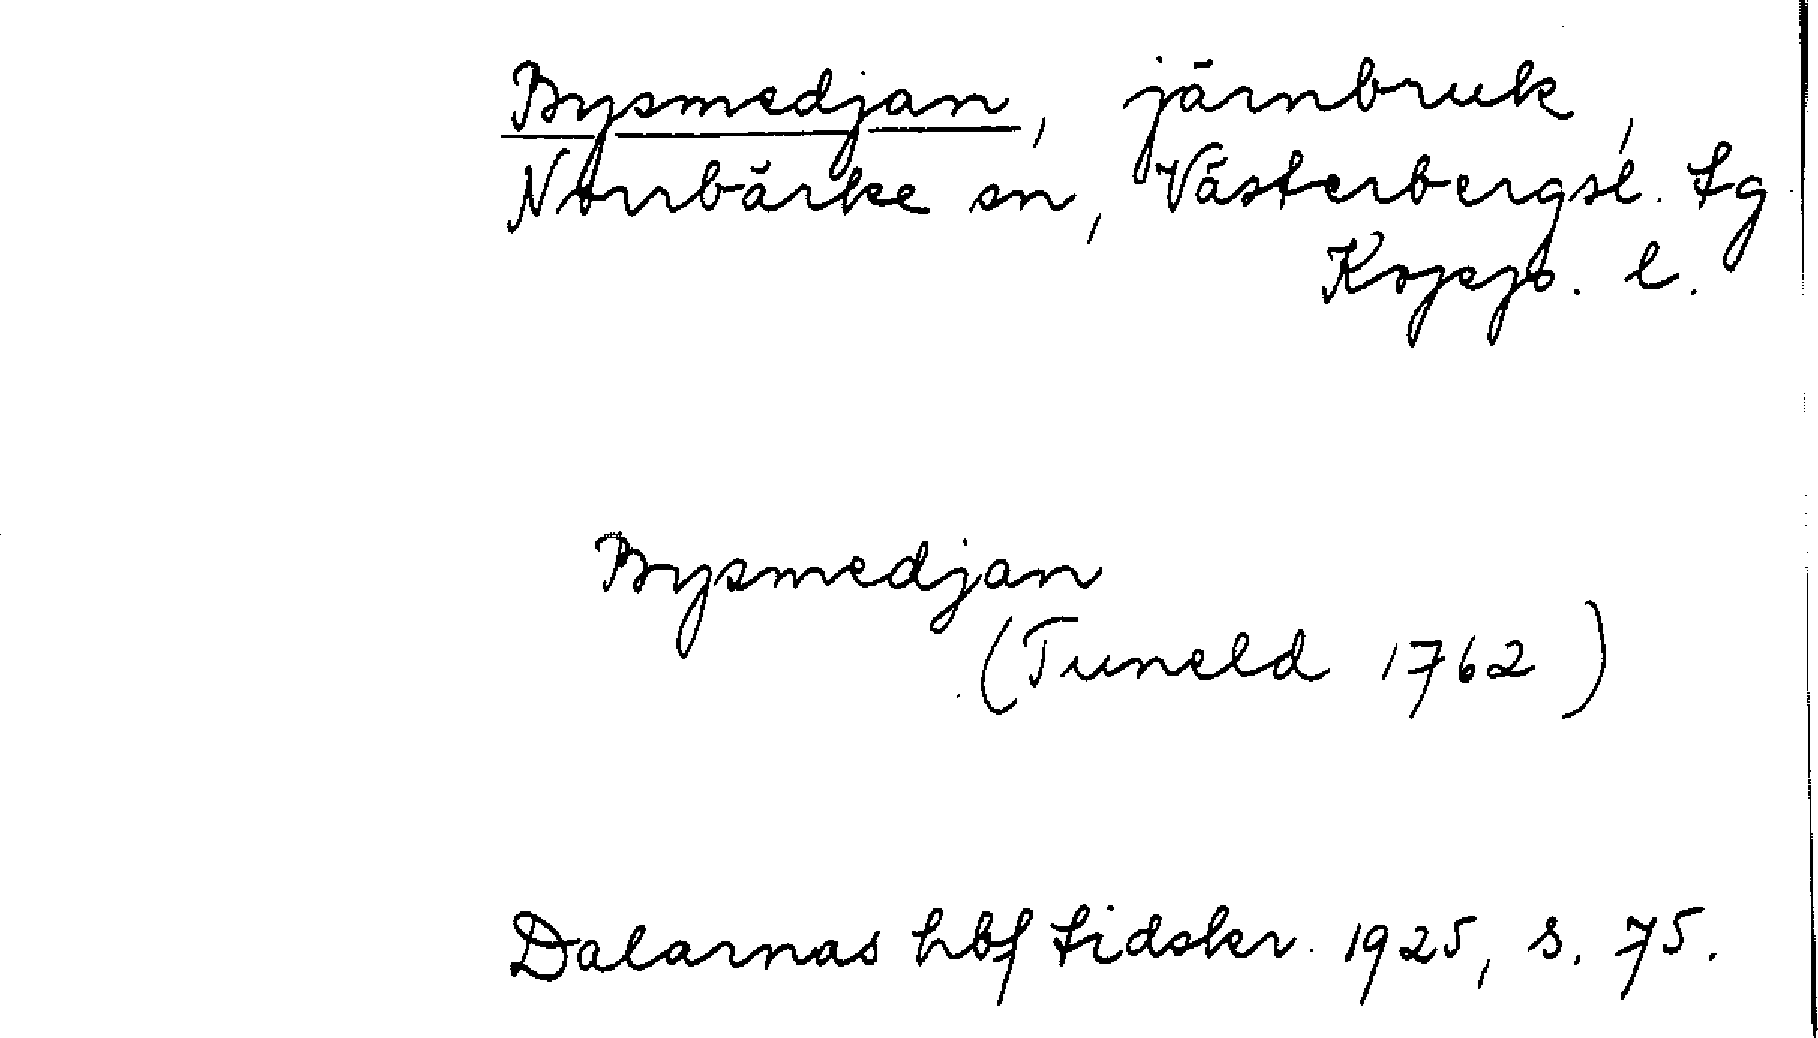 Bysmedjan, järnbruk,
Norrbärke sn, Västerbergsl. tg
Kopp. l.
Bysmedjan
(Tuneld 1762)
Dalarnas hbf tidskr. 1925, s. 75.